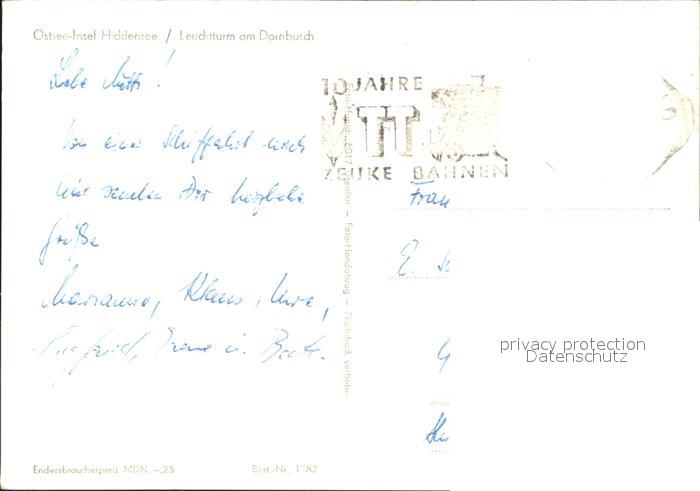 Ostsee-Insel Hiddensee / Leuchtturm am Dornbusch
Liebe Mutti!
Von einer Schiffahrt nach
hier senden Dir herzliche
Grüße
Marianne, Klaus, Uwe,
Siegfried, Irene u. Beate.
10 JAHRE
TT
ZEUKE BAHNEN
Foto-Handabzug – Nachdruck verboten
Frau
E.
privacy protection
Datenschutz
Endverbraucherpreis MDN –,25 Best.-Nr. 1782